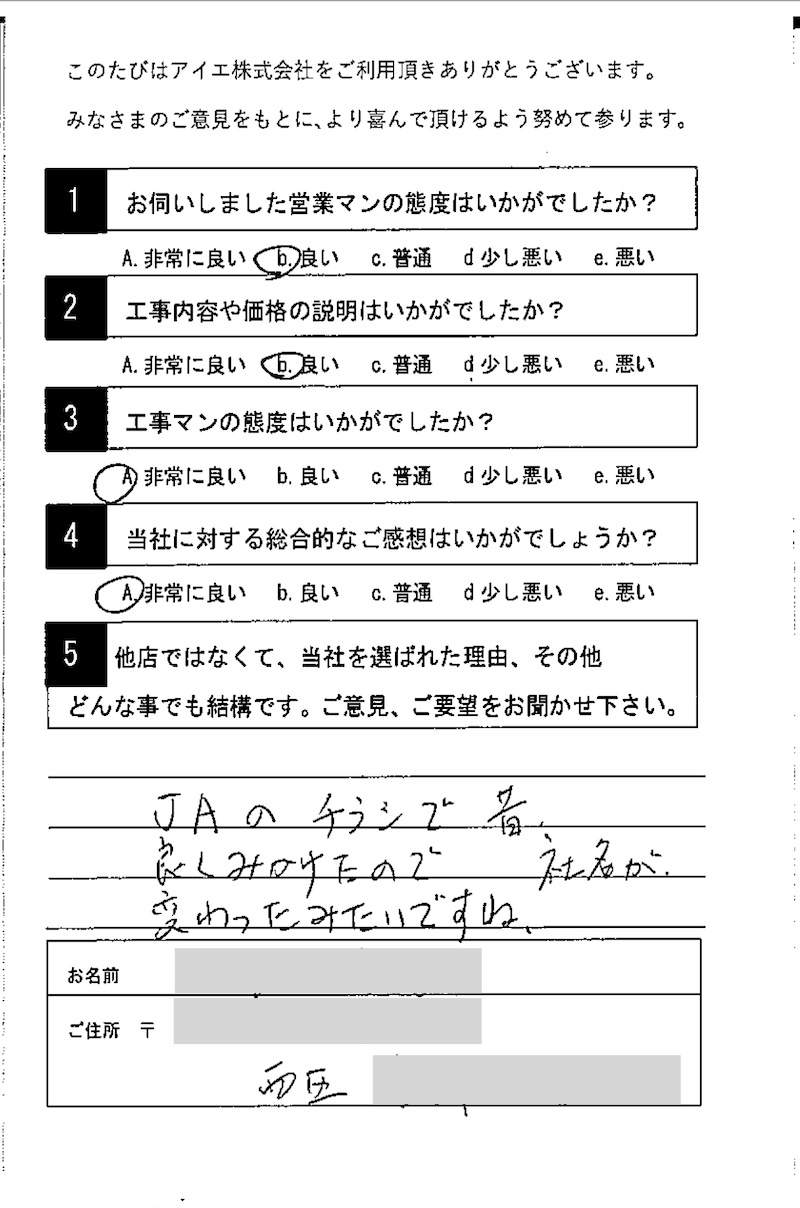 このたびはアイエ株式会社をご利用頂きありがとうございます。
みなさまのご意見をもとに、より喜んで頂けるよう努めて参ります。
1 お伺いしました営業マンの態度はいかがでしたか？
A. 非常に良い b. 良い c. 普通 d 少し悪い e. 悪い
2 工事内容や価格の説明はいかがでしたか？
A. 非常に良い b. 良い c. 普通 d 少し悪い e. 悪い
3 工事マンの態度はいかがでしたか？
A 非常に良い b. 良い c. 普通 d 少し悪い e. 悪い
4 当社に対する総合的なご感想はいかがでしょうか？
A. 非常に良い b. 良い c. 普通 d 少し悪い e. 悪い
5 他店ではなくて、当社を選ばれた理由、その他
どんな事でも結構です。ご意見、ご要望をお聞かせ下さい。
JAのチラシで昔、
良くみかけたので 社名が、
変わったみたいですね、
お名前
ご住所 〒
西区